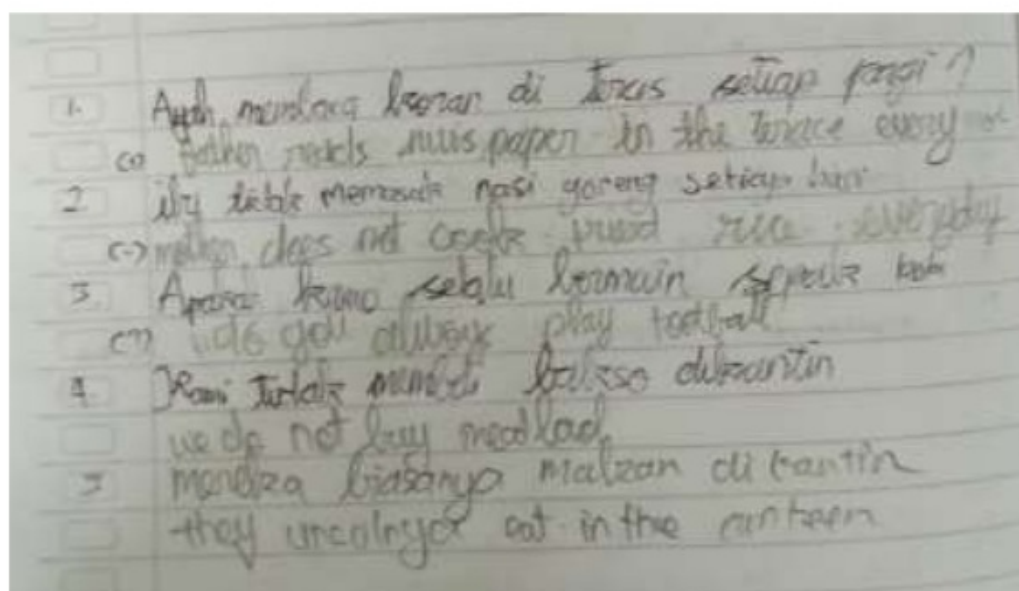 1. Ayah membaca koran di teras setiap pagi ?
father reads nuus paper in the terace every
2 ibu tidak memasak nasi goreng setiap hari
(-) mother does not cook rice everyday
3. Apakah kamu selalu bermain sepak bola
(?) do you always play football
4 Kami tidak membeli bakso dikantin
we do not buy
mereka biasanya makan di kantin
they eat in the